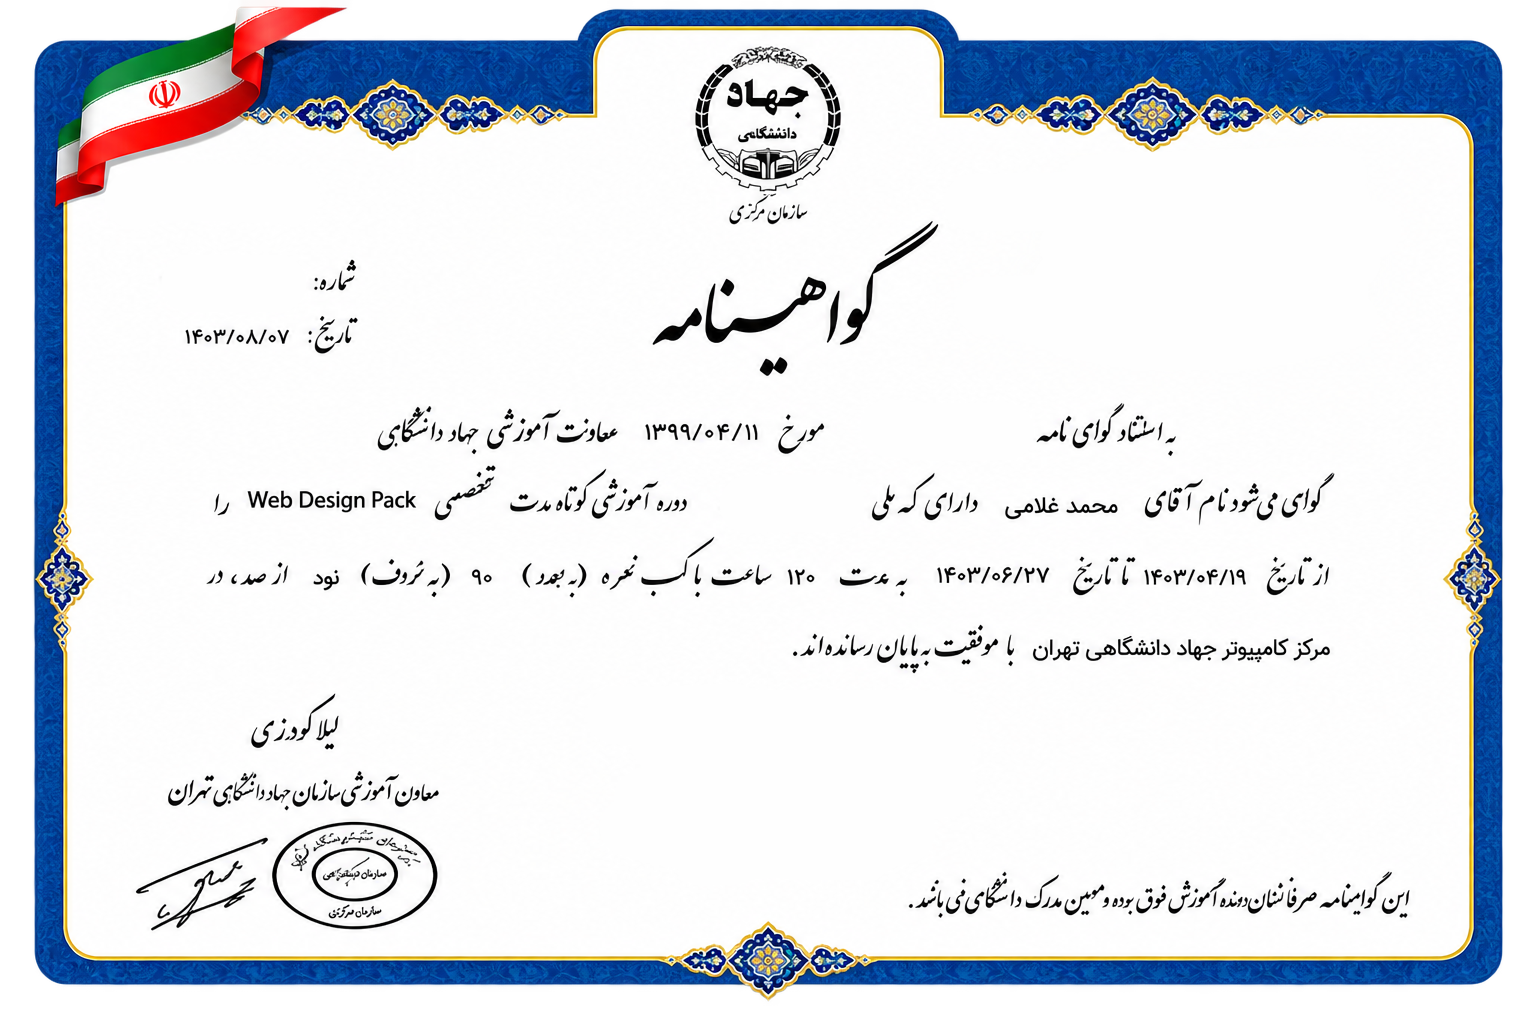 جهاد
دانشگاهی
سازمان مرکزی
گواهینامه
شماره:
تاریخ: ۱۴۰۳/۰۸/۰۷
به استناد گوای نامه مورخ ۱۳۹۹/۰۴/۱۱ معاونت آموزشی جهاد دانشگاهی
گوای می‌شود نام آقای محمد غلامی دارای که ملی دوره آموزشی کوتاه مدت تخصصی Web Design Pack را
از تاریخ ۱۴۰۳/۰۴/۱۹ تا تاریخ ۱۴۰۳/۰۶/۲۷ به مدت ۱۲۰ ساعت با کسب نمره (به عدد) ۹۰ (به حروف) نود از صد، در
مرکز کامپیوتر جهاد دانشگاهی تهران با موفقیت به پایان رسانده‌اند.
لیلا کودرزی
معاون آموزشی سازمان جهاد دانشگاهی تهران
سازمان مرکزی
این گواهینامه صرفا آموزش فوق بوده و مدرک دانشگاهی نمی باشد.